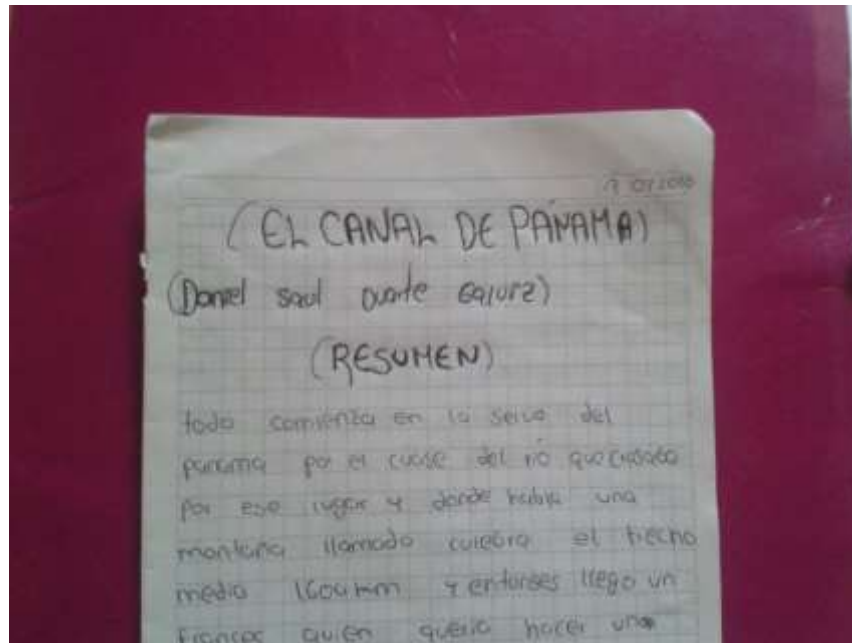 (EL CANAL DE PANAMA)
(Daniel saul duarte)
(RESUMEN)
todo comienza en la selva del
panama por el cruse del rio que
por ese lugar y donde habia una
montaña llamado culebra el trecho
media y entonses llego un
frances quien queria hacer una